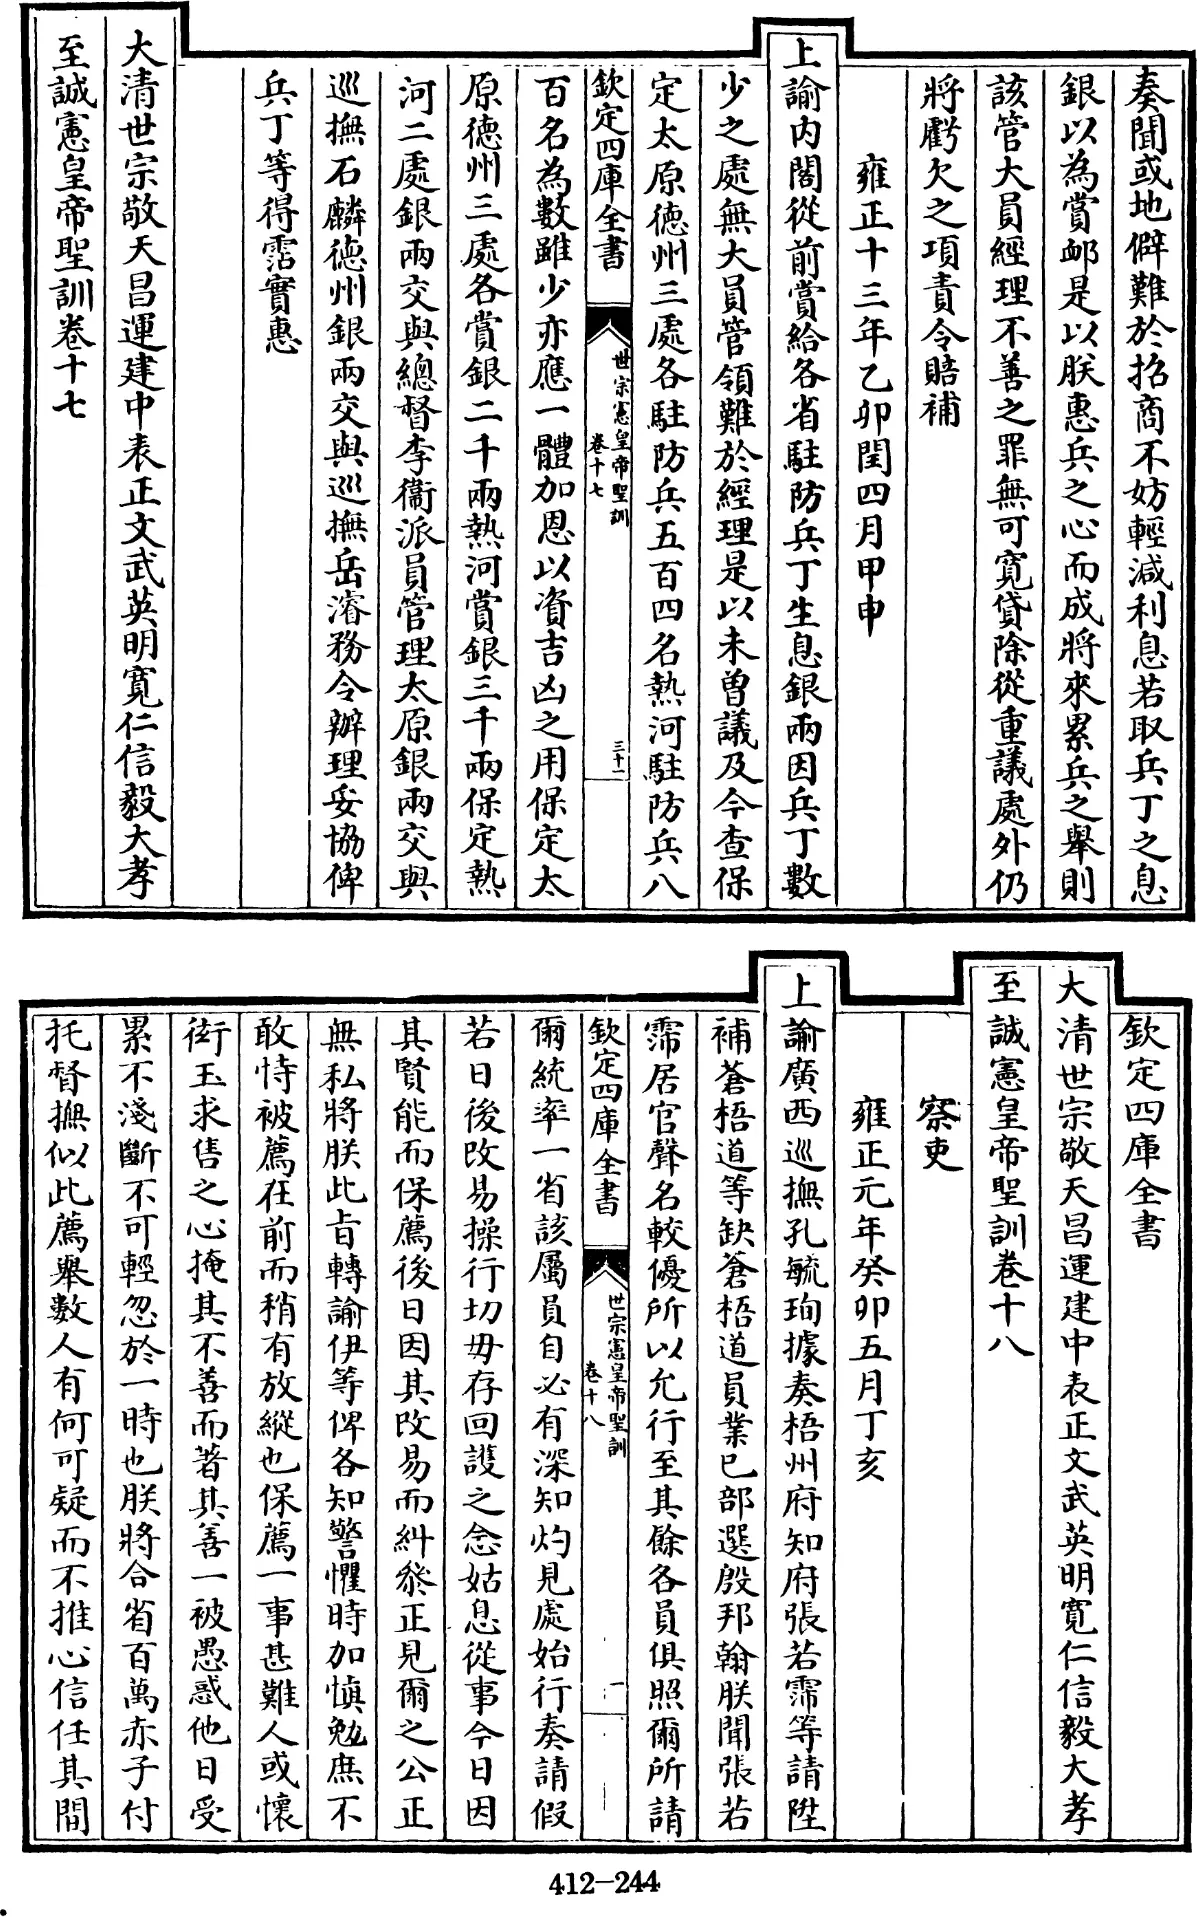 奏聞或地僻難於招商不妨輕減利息若取兵丁之息
銀以為賞䘏是以朕惠兵之心而成將來累兵之舉則
該管大員經理不善之罪無可寬貸除從重議處外仍
將虧欠之項責令賠補
雍正十三年乙卯閏四月甲申
上諭内閣從前賞給各省駐防兵丁生息銀兩因兵丁數
少之處無大員管領難於經理是以未曽議及今查保
定太原德州三處各駐防兵五百四名熱河駐防兵八
欽定四庫全書
世宗憲皇帝聖訓
卷十七
三十一
百名為數雖少亦應一體加恩以資吉凶之用保定太
原德州三處各賞銀二千兩熱河賞銀三千兩保定熱
河二處銀兩交與總督李衞派員管理太原銀兩交與
巡撫石麟德州銀兩交與巡撫岳濬務令辦理妥協俾
兵丁等得霑實惠
大清世宗敬天昌運建中表正文武英明寛仁信毅大孝
至誠憲皇帝聖訓卷十七
欽定四庫全書
大清世宗敬天昌運建中表正文武英明寛仁信毅大孝
至誠憲皇帝聖訓卷十八
察吏
雍正元年癸卯五月丁亥
上諭廣西巡撫孔毓珣據奏梧州府知府張若霈等請陞
補蒼梧道等缺蒼梧道員業已部選殷邦翰朕聞張若
霈居官聲名較優所以允行至其餘各員俱照爾所請
欽定四庫全書
世宗憲皇帝聖訓
卷十八
一
爾統率一省該屬員自必有深知灼見處始行奏請假
若日後改易操行切毋存回護之念姑息從事今日因
其賢能而保薦後日因其改易而糾叅正見爾之公正
無私將朕此旨轉諭伊等俾各知警懼時加慎勉庶不
敢恃被薦在前而稍有放縱也保薦一事甚難人或懷
衒玉求售之心掩其不善而著其善一被愚惑他日受
累不淺斷不可輕忽於一時也朕將合省百萬赤子付
托督撫似此薦舉數人有何可疑而不推心信任其間
412-244